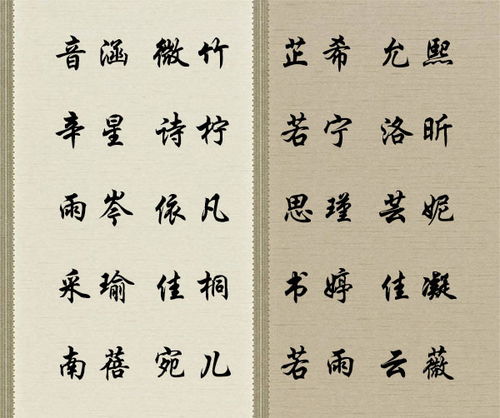 音涵 微竹 芷希 允熙
辛星 诗柠 若宁 洛昕
雨岑 依凡 思瑾 芸妮
采瑜 佳桐 书婷 佳凝
南蓓 宛儿 若雨 云薇